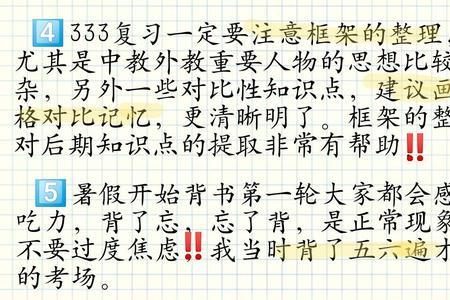 4 333复习一定要注意框架的整理，
尤其是中教外教重要人物的思想比较
杂，另外一些对比性知识点，建议画
格对比记忆，更清晰明了。框架的整
对后期知识点的提取非常有帮助‼️
5 暑假开始背书第一轮大家都会感
吃力，背了忘，忘了背，是正常现象
不要过度焦虑‼️我当时背了五六遍才
的考场。